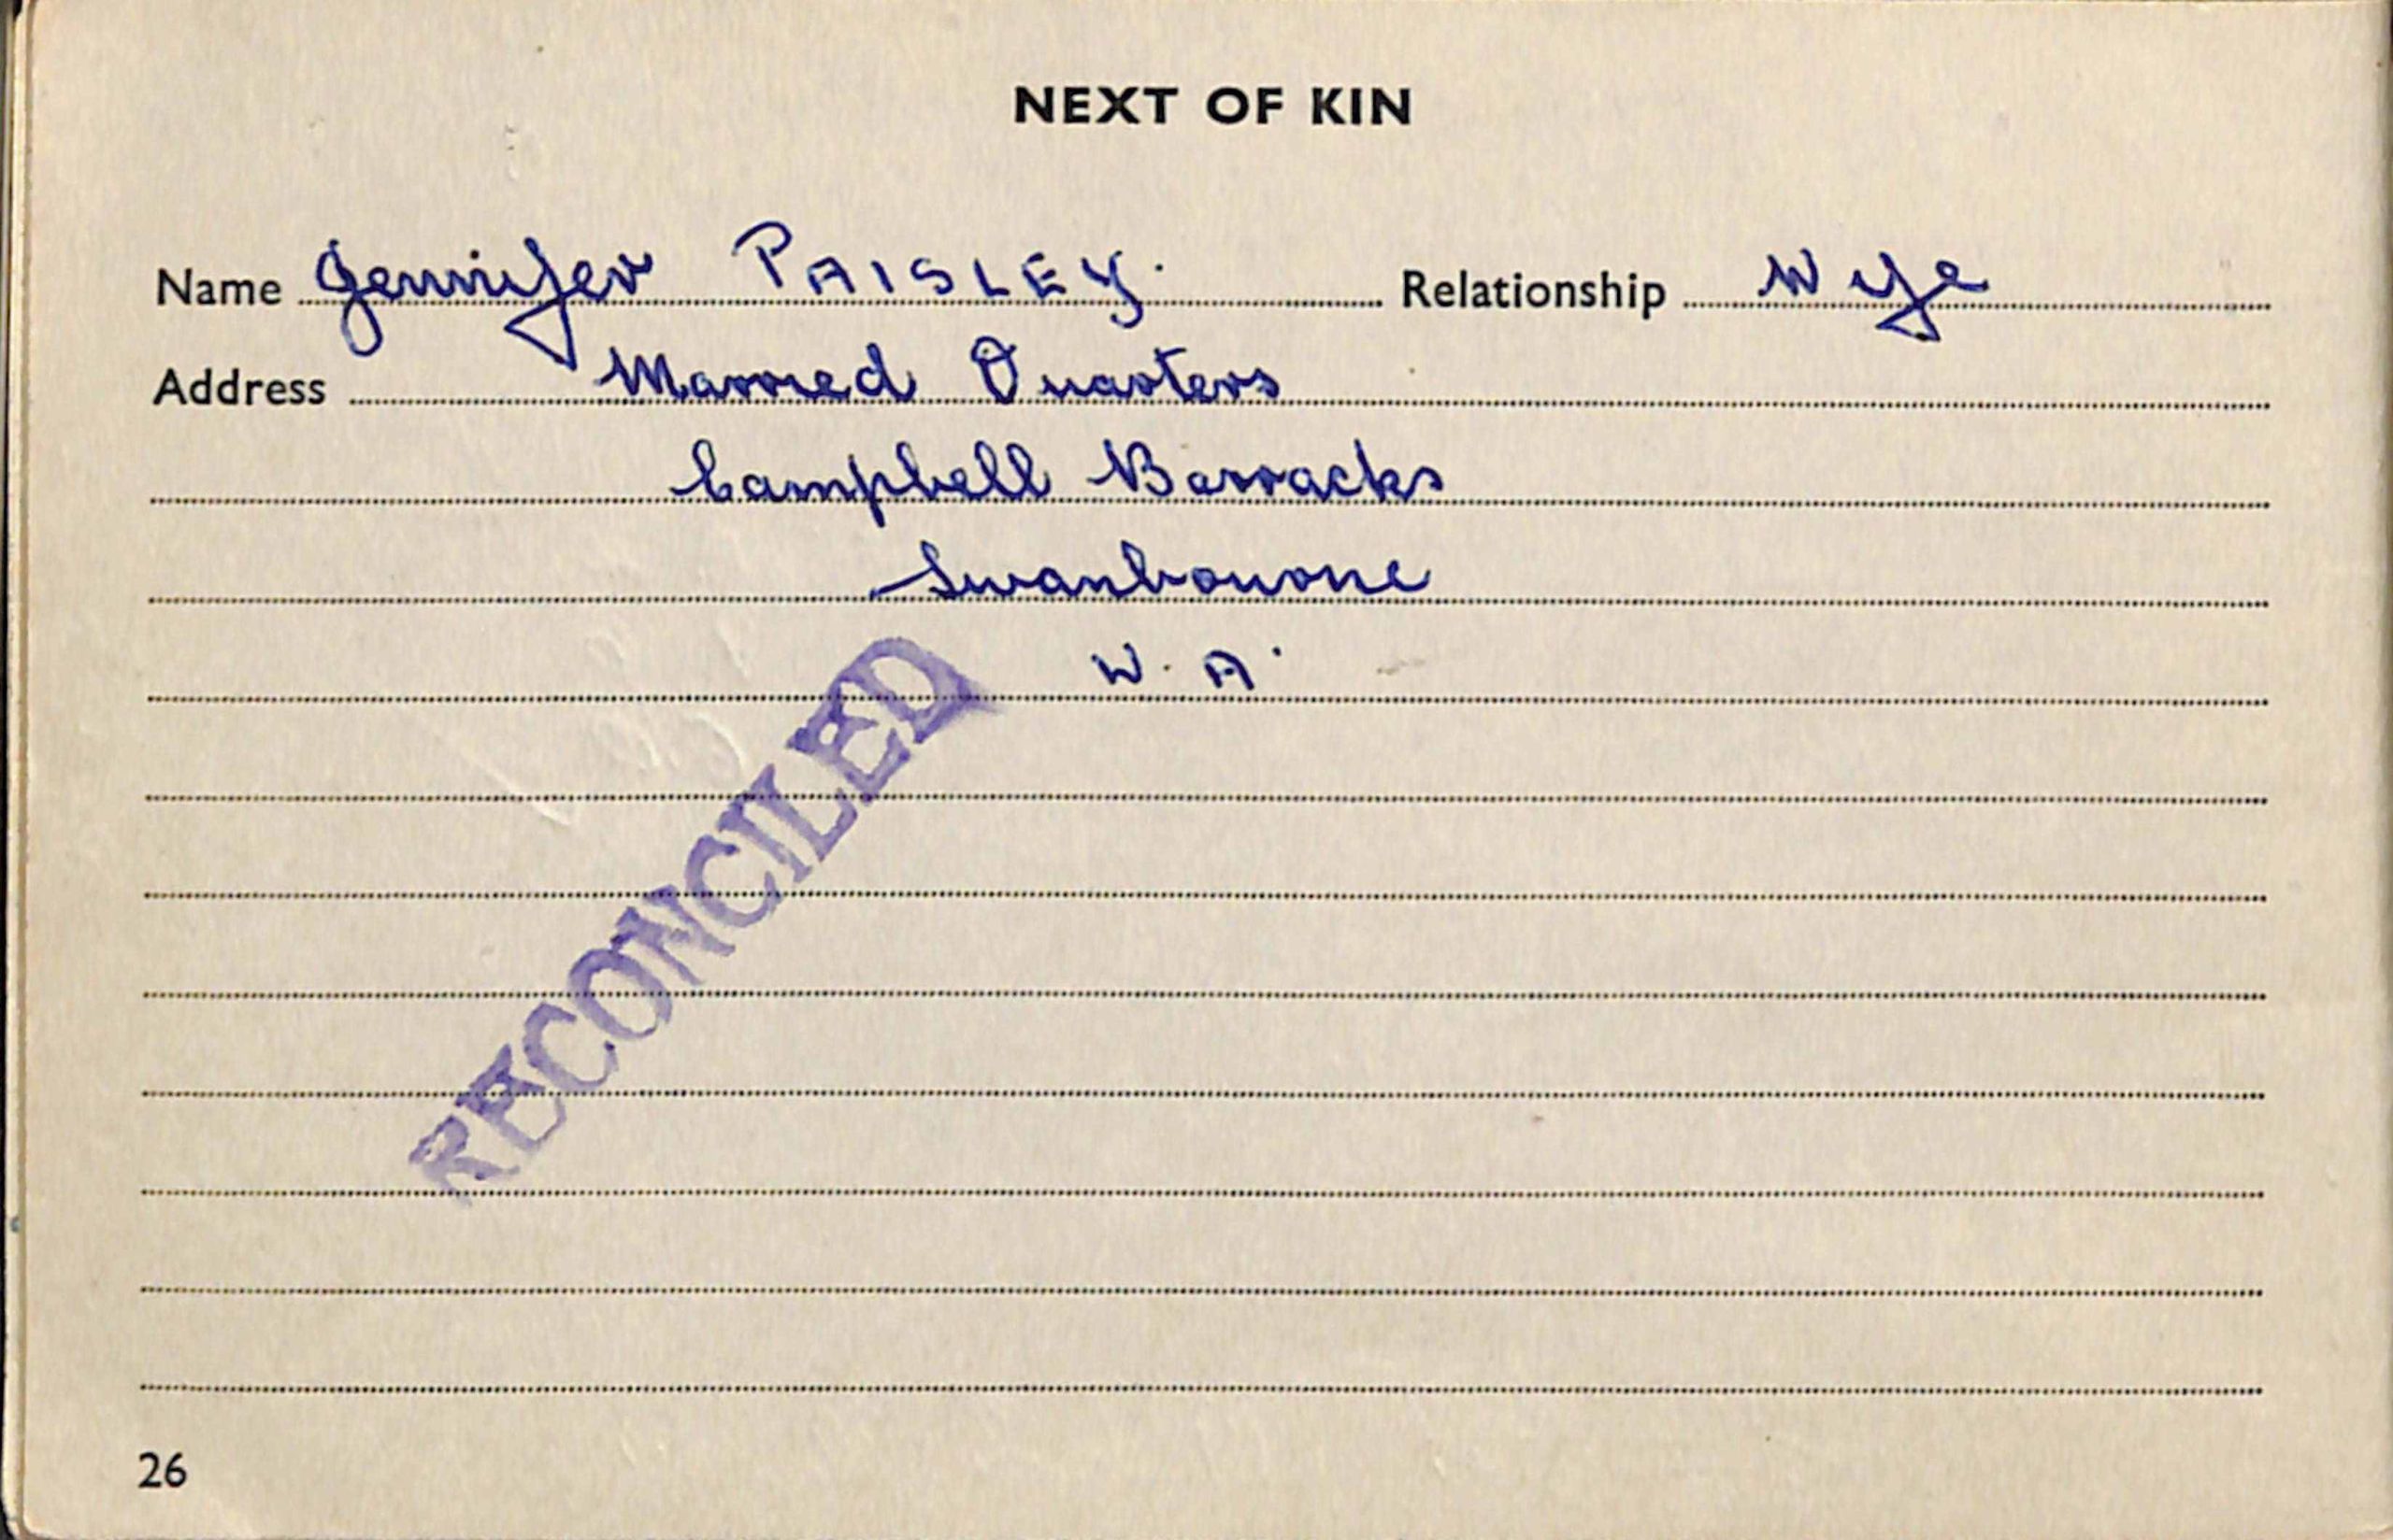 NEXT OF KIN
Name Jennifer PAISLEY. Relationship Wife
Address Married Quarters
Campbell Barracks
Swanbourne
W. A.
RECONCILED
26